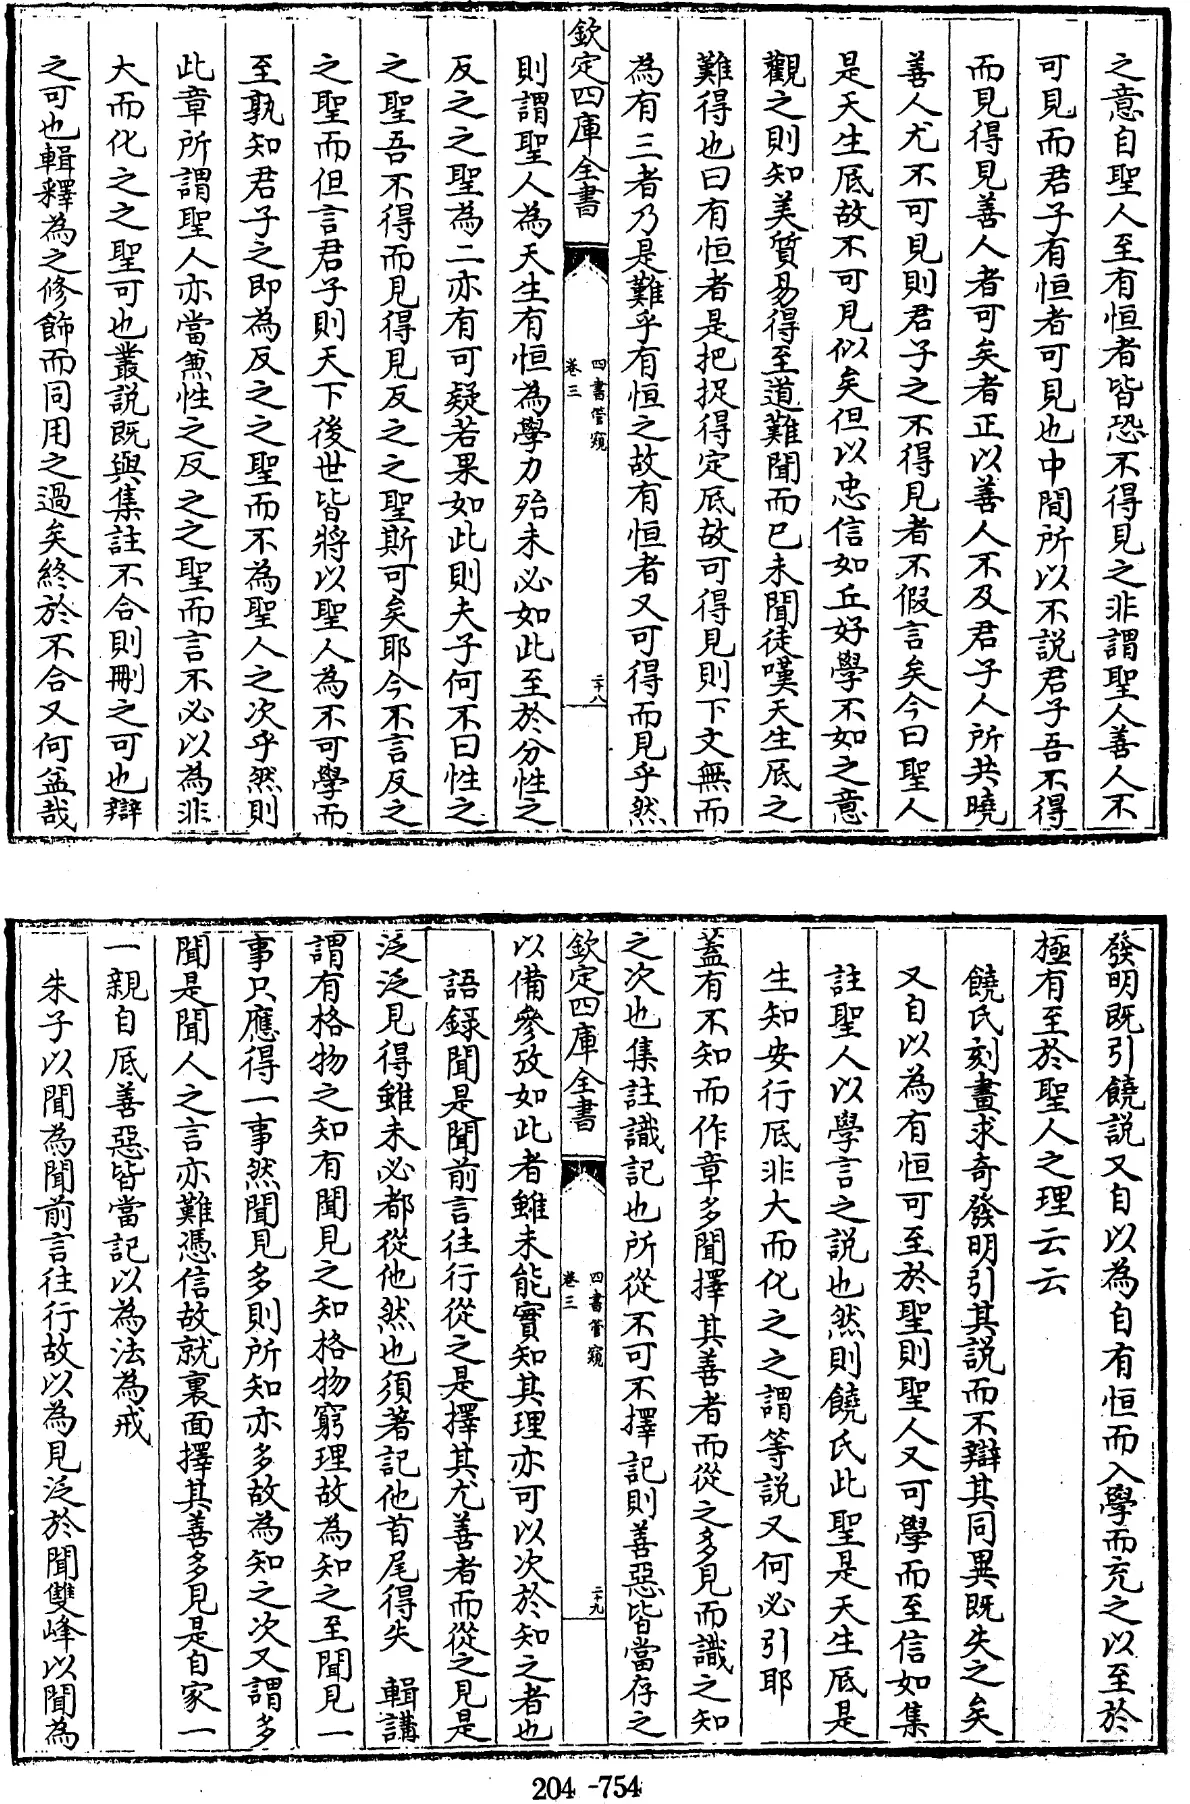 之意自聖人至有恒者皆恐不得見之非謂聖人善人不
可見而君子有恒者可見也中間所以不說君子吾不得
而見得見善人者可矣者正以善人不及君子人所共曉
善人尤不可見則君子之不得見者不假言矣今曰聖人
是天生底故不可見似矣但以忠信如丘好學不如之意
觀之則知美質易得至道難聞而已未聞徒嘆天生底之
難得也曰有恒者是把捉得定底故可得見則下文無而
為有三者乃是難乎有恒之故有恒者又可得而見乎然
欽定四庫全書
四書管窺
卷三
二十八
則謂聖人為天生有恒為學力殆未必如此至於分性之
反之之聖為二亦有可疑若果如此則夫子何不曰性之
之聖吾不得而見得見反之之聖斯可矣耶今不言反之
之聖而但言君子則天下後世皆將以聖人為不可學而
至孰知君子之即為反之之聖而不為聖人之次乎然則
此章所謂聖人亦當兼性之反之之聖而言不必以為非
大而化之之聖可也叢説既與集註不合則刪之可也辯
之可也輯釋為之修飾而同用之過矣終於不合又何益哉
發明既引饒説又自以為自有恒而入學而充之以至於
極有至於聖人之理云云
饒氏刻畫求奇發明引其説而不辯其同異既失之矣
又自以為有恒可至於聖則聖人又可學而至信如集
註聖人以學言之說也然則饒氏此聖是天生底是
生知安行底非大而化之之謂等說又何必引耶
蓋有不知而作章多聞擇其善者而從之多見而識之知
之次也集註識記也所從不可不擇記則善惡皆當存之
欽定四庫全書
四書管窺
卷三
二十九
以備參攷如此者雖未能實知其理亦可以次於知之者也
語錄聞是聞前言往行從之是擇其尤善者而從之見是
泛泛見得雖未必都從他然也須著記他首尾得失 輯講
謂有格物之知有聞見之知格物窮理故為知之至聞見一
事只應得一事然聞見多則所知亦多故為知之次又謂多
聞是聞人之言亦難憑信故就裏面擇其善多見是自家一
一親自底善惡皆當記以為法為戒
朱子以聞為聞前言往行故以為見泛於聞雙峰以聞為
204-754